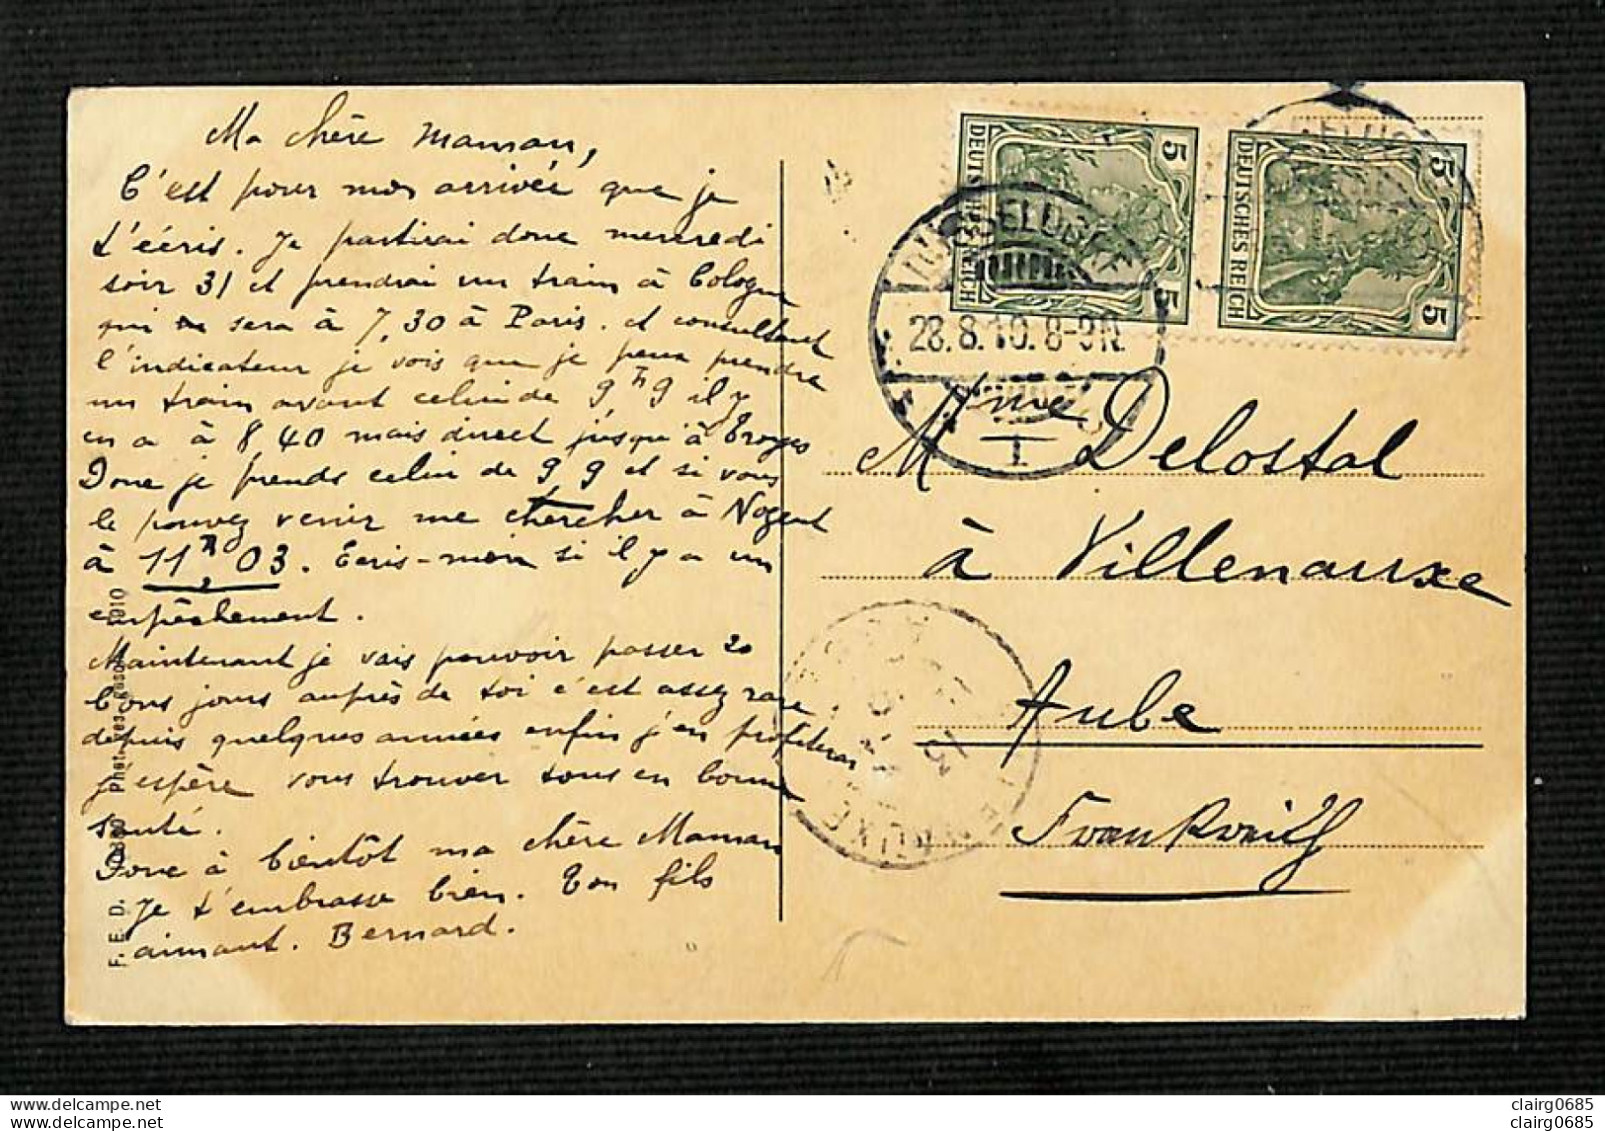 Ma chère Maman,
C'est pour mon arrivée que je
t'écris. Je partirai donc mercredi
soir 31 et prendrai un train à Cologne
qui sera à 7,30 à Paris. et consultant
l'indicateur je vois que je peux prendre
un train avant celui de 9h9 il y
en a à 8 40 mais direct jusqu'à Troyes
Donc je prends celui de 9 9 et si vous
le pouvez venir me chercher à Nogent
à 11h 03. Ecris-moi si il y a un
empêchement.
Maintenant je vais pouvoir passer 20
bons jours auprès de toi c'est assez rare
depuis quelques années enfin j'en profiterai
J'espère vous trouver tous en bonne
santé.
Donc à bientôt ma chère Maman
Je t'embrasse bien. Ton fils
aimant. Bernard.
F. E. D.
Phot.
1910
DEUTSCHES REICH
5
5
DEUTSCHES REICH
5
5
DUSSELDORF
28.8.10.8-9N.
1
Mme Delostal
à Villenauxe
Aube
Frankreich
clairg0685
clairg0685